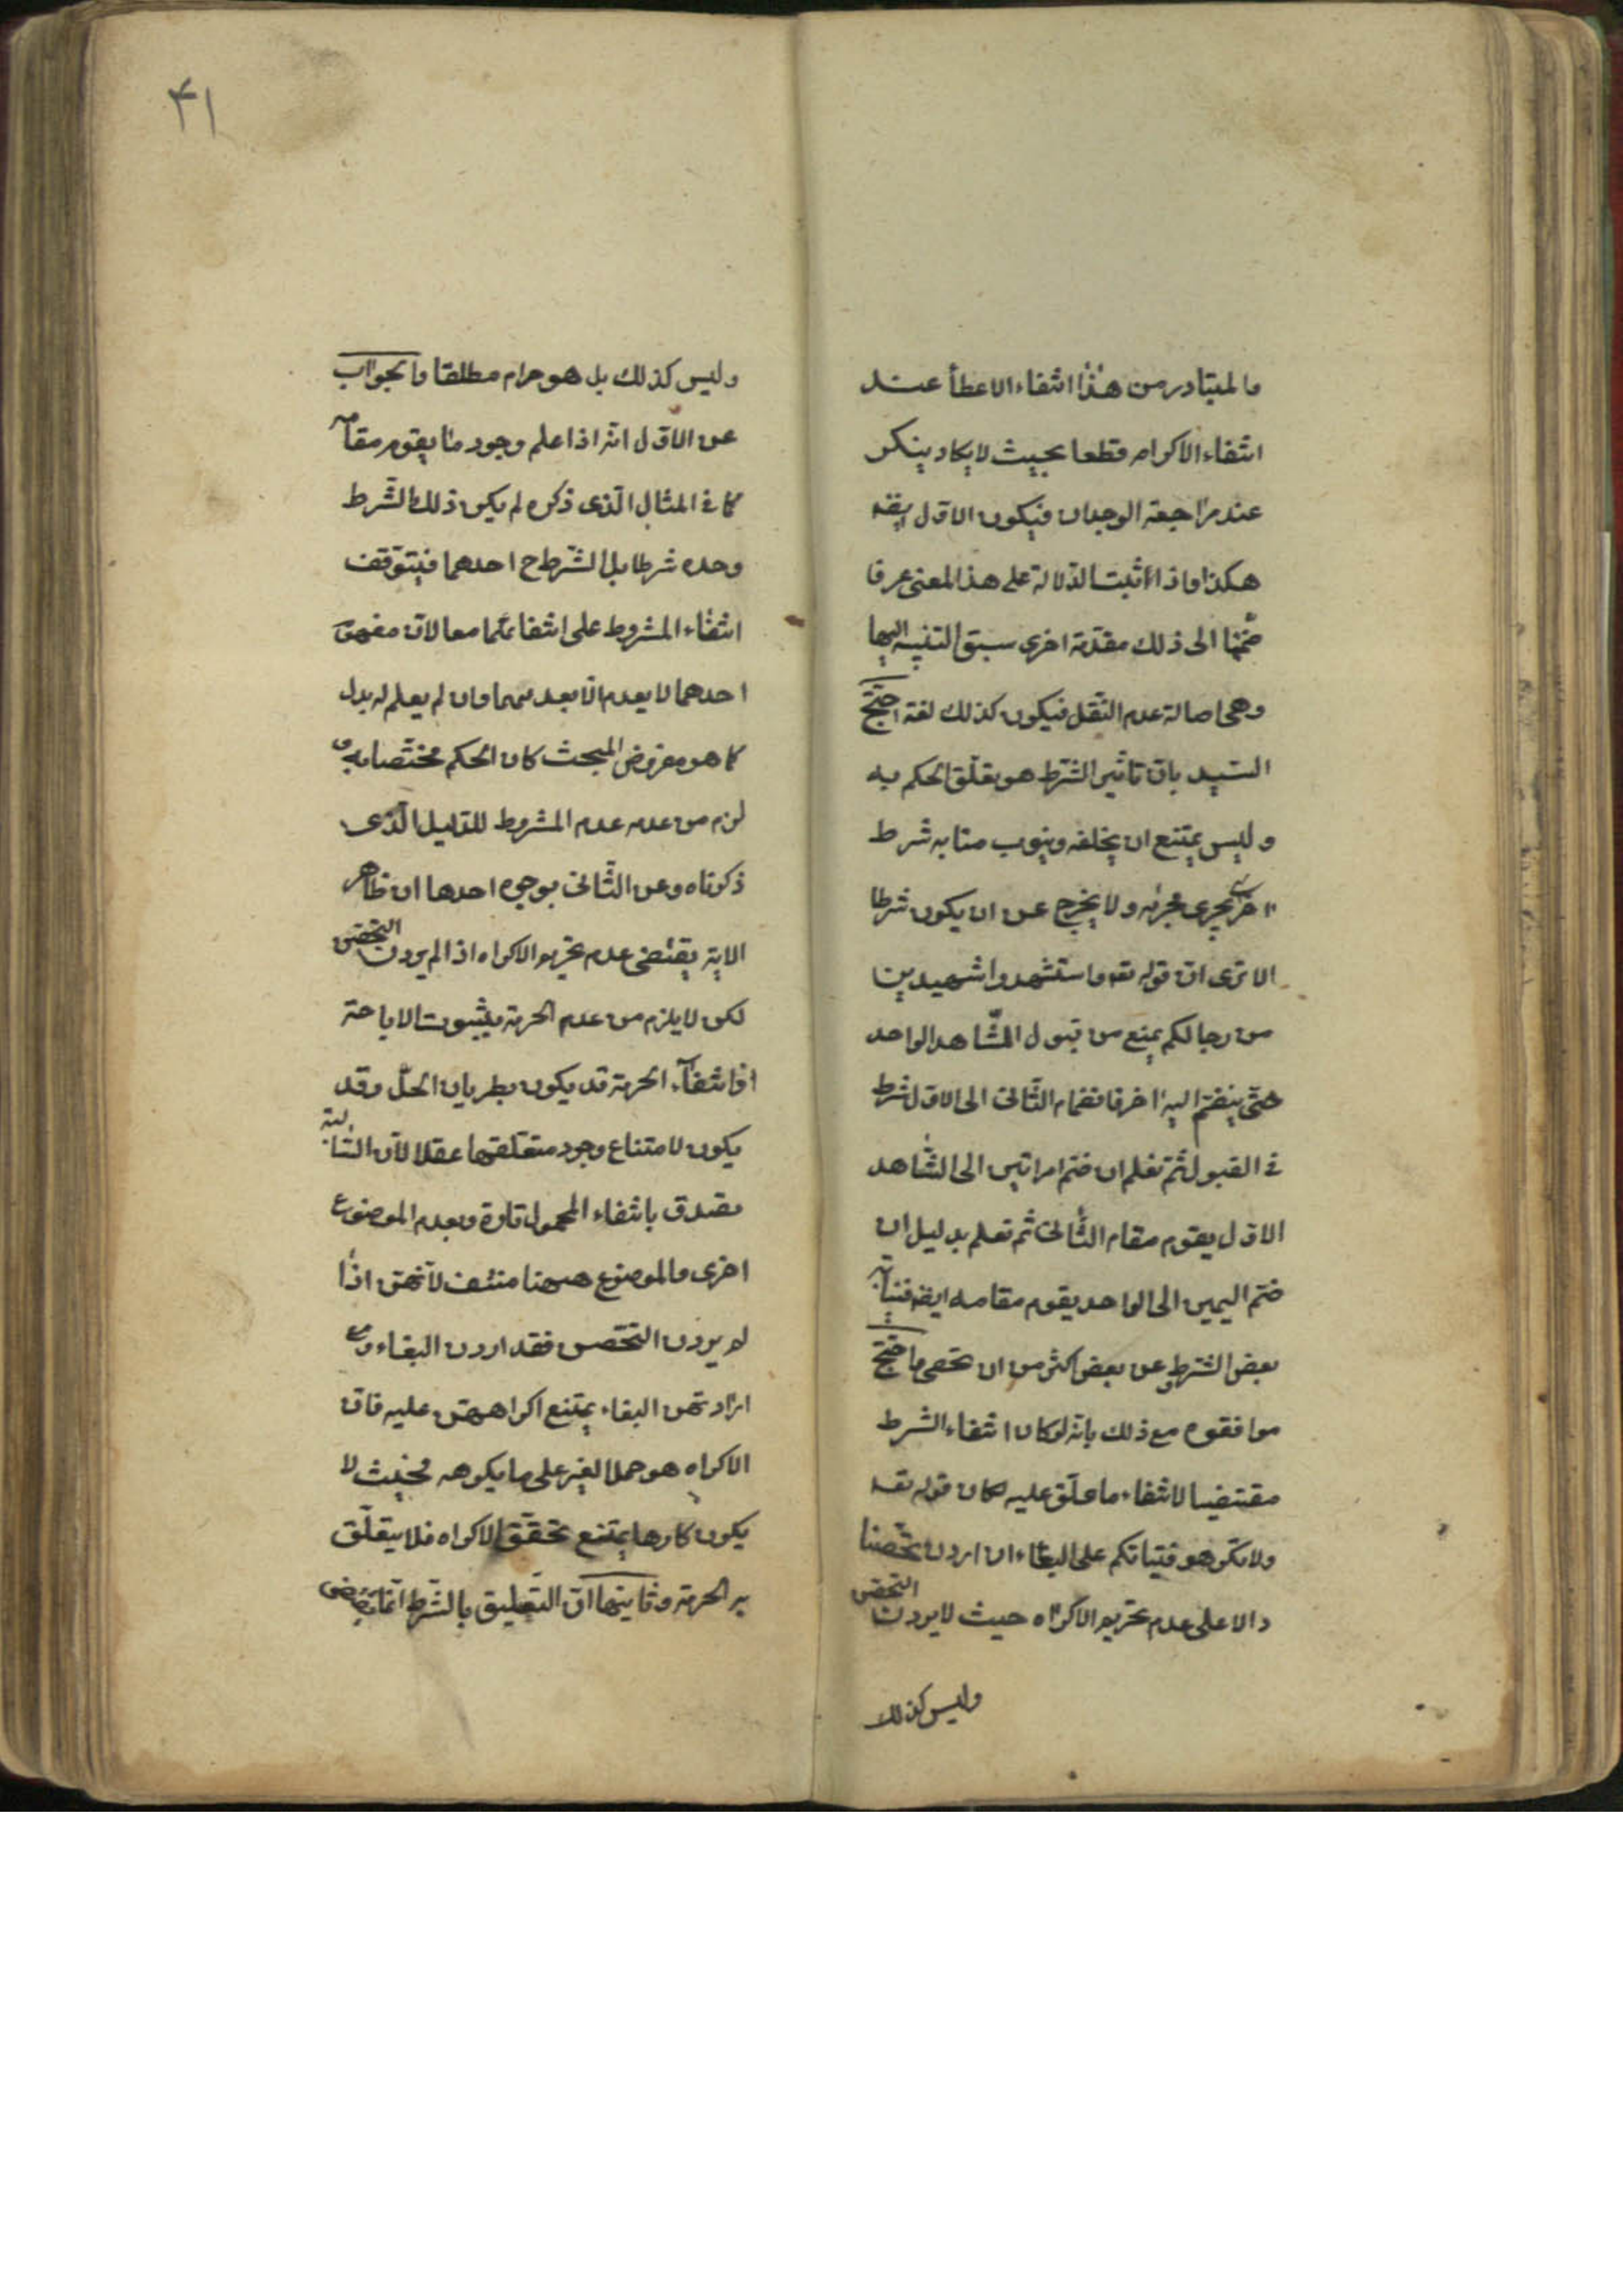 والمتبادر من هذا انتفاء الاعطأ عند
انتفاء الاكرام قطعا بحيث لا يكاد ينكر
عند مراجعة الوجدان فيكون الاول ايضه
هكذا واذا اثبت الدلالة على هذا المعنى عرفا
ضممنا الى ذلك مقدمة اخرى سبق التنبيه اليها
وهى اصالة عدم النقل فيكون كذلك لغة احتج
السيد بان تاثير الشرط هو تعلق الحكم به
وليس يمتنع ان يخلفه وينوب منابه شرط
اخر يجرى مجراه ولا يخرج عن ان يكون شرطا
الا ترى ان قوله تعه واستشهدوا شهيدين
من رجالكم يمنع من قبول الشاهد الواحد
حتى ينضم اليه اخر فانضمام الثانى الى الاول شرط
فى القبول ثم نعلم ان ضم امراتين الى الشاهد
الاول يقوم مقام الثانى ثم نعلم بدليل ان
ضم اليمين الى الواحد يقوم مقامه ايضه فنيابة
بعض الشرط عن بعض اكثر من ان تحصى واحتج
موافقوه مع ذلك بانه لو كان انتفاء الشرط
مقتضيا لانتفاء ما علق عليه لكان قوله تعه
ولا تكرهوا فتياتكم على البغاء ان اردن تحصنا
دالا على عدم تحريم الاكراه حيث لا يردن التحصن
وليس كذلك
۴۱
وليس كذلك بل هو حرام مطلقا والجواب
عن الاول انه اذا علم وجود ما يقوم مقامه
كما فى المثال الذى ذكره لم يكن ذلك الشرط
وحده شرطا بل الشرط ح احدهما فيتوقف
انتفاء المشروط على انتفائهما معا لان مفهوم
احدهما لا يعدم الا بعدمهما وان لم يعلم له بدل
كما هو مفروض المبحث كان الحكم مختصا به و
لزم من عدمه عدم المشروط للدليل الذى
ذكرناه وعن الثانى بوجوه احدها ان ظاهر
الاية يقتضى عدم تحريم الاكراه اذا لم يردن التحصن
لكن لا يلزم من عدم الحرمة ثبوت الاباحة
اذ انتفاء الحرمة قد يكون بطريان الحل وقد
يكون لامتناع وجود متعلقها عقلا لان السالبة
تصدق بانتفاء المحمول تارة وبعدم الموضوع
اخرى والموضوع ههنا منتف لانهن اذا
لم يردن التحصن فقد اردن البغاء ومع
ارادتهن البغاء يمتنع اكراههن عليه فان
الاكراه هو حمل الغير على ما يكرهه فحيث لا
يكون كارها يمتنع تحقق الاكراه فلا يتعلق
به الحرمة وثانيها ان التعليق بالشرط انما يقتضى